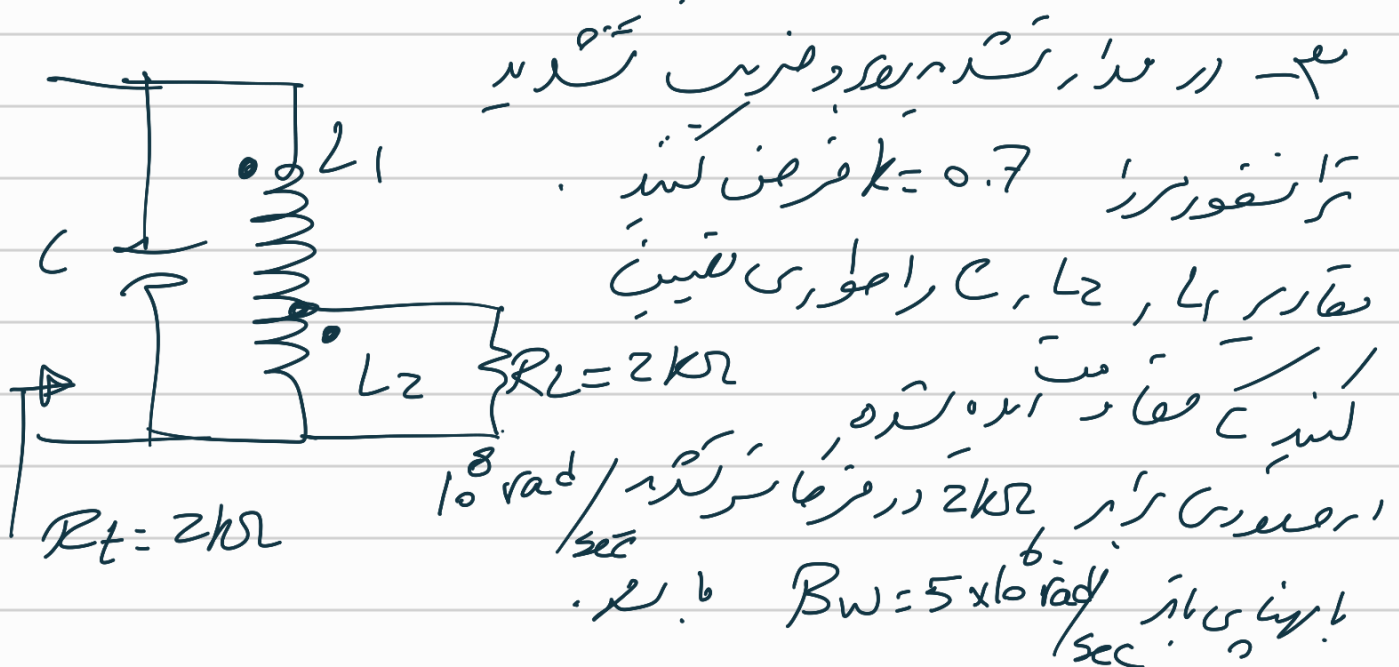 ۳- در مدار تشدید روبرو ضریب تشدید
ترانسفورمر را k = 0.7 فرض کنید.
مقادیر L1, L2, C را طوری تعیین
کنید که مقاومت دیده شده
از ورودی برابر 2kΩ در فرکانس تشدید 10^8 rad/sec
با پهنای باند Bw = 5 x 10^6 rad/sec باشد.
L1
C
L2
RL = 2kΩ
Rt = 2kΩ